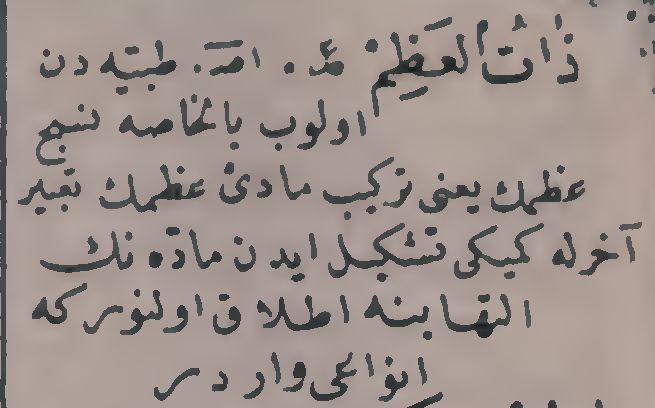 ذات العظم عر. امر. طبيه دن
اولوب بالخاصه نسج
عظمك يعنى تركيب مادئ عظمك تعبير
آخرله كميكى تشكيل ايدن ماده نك
التهابنه اطلاق اولنور كه
انواعى واردر